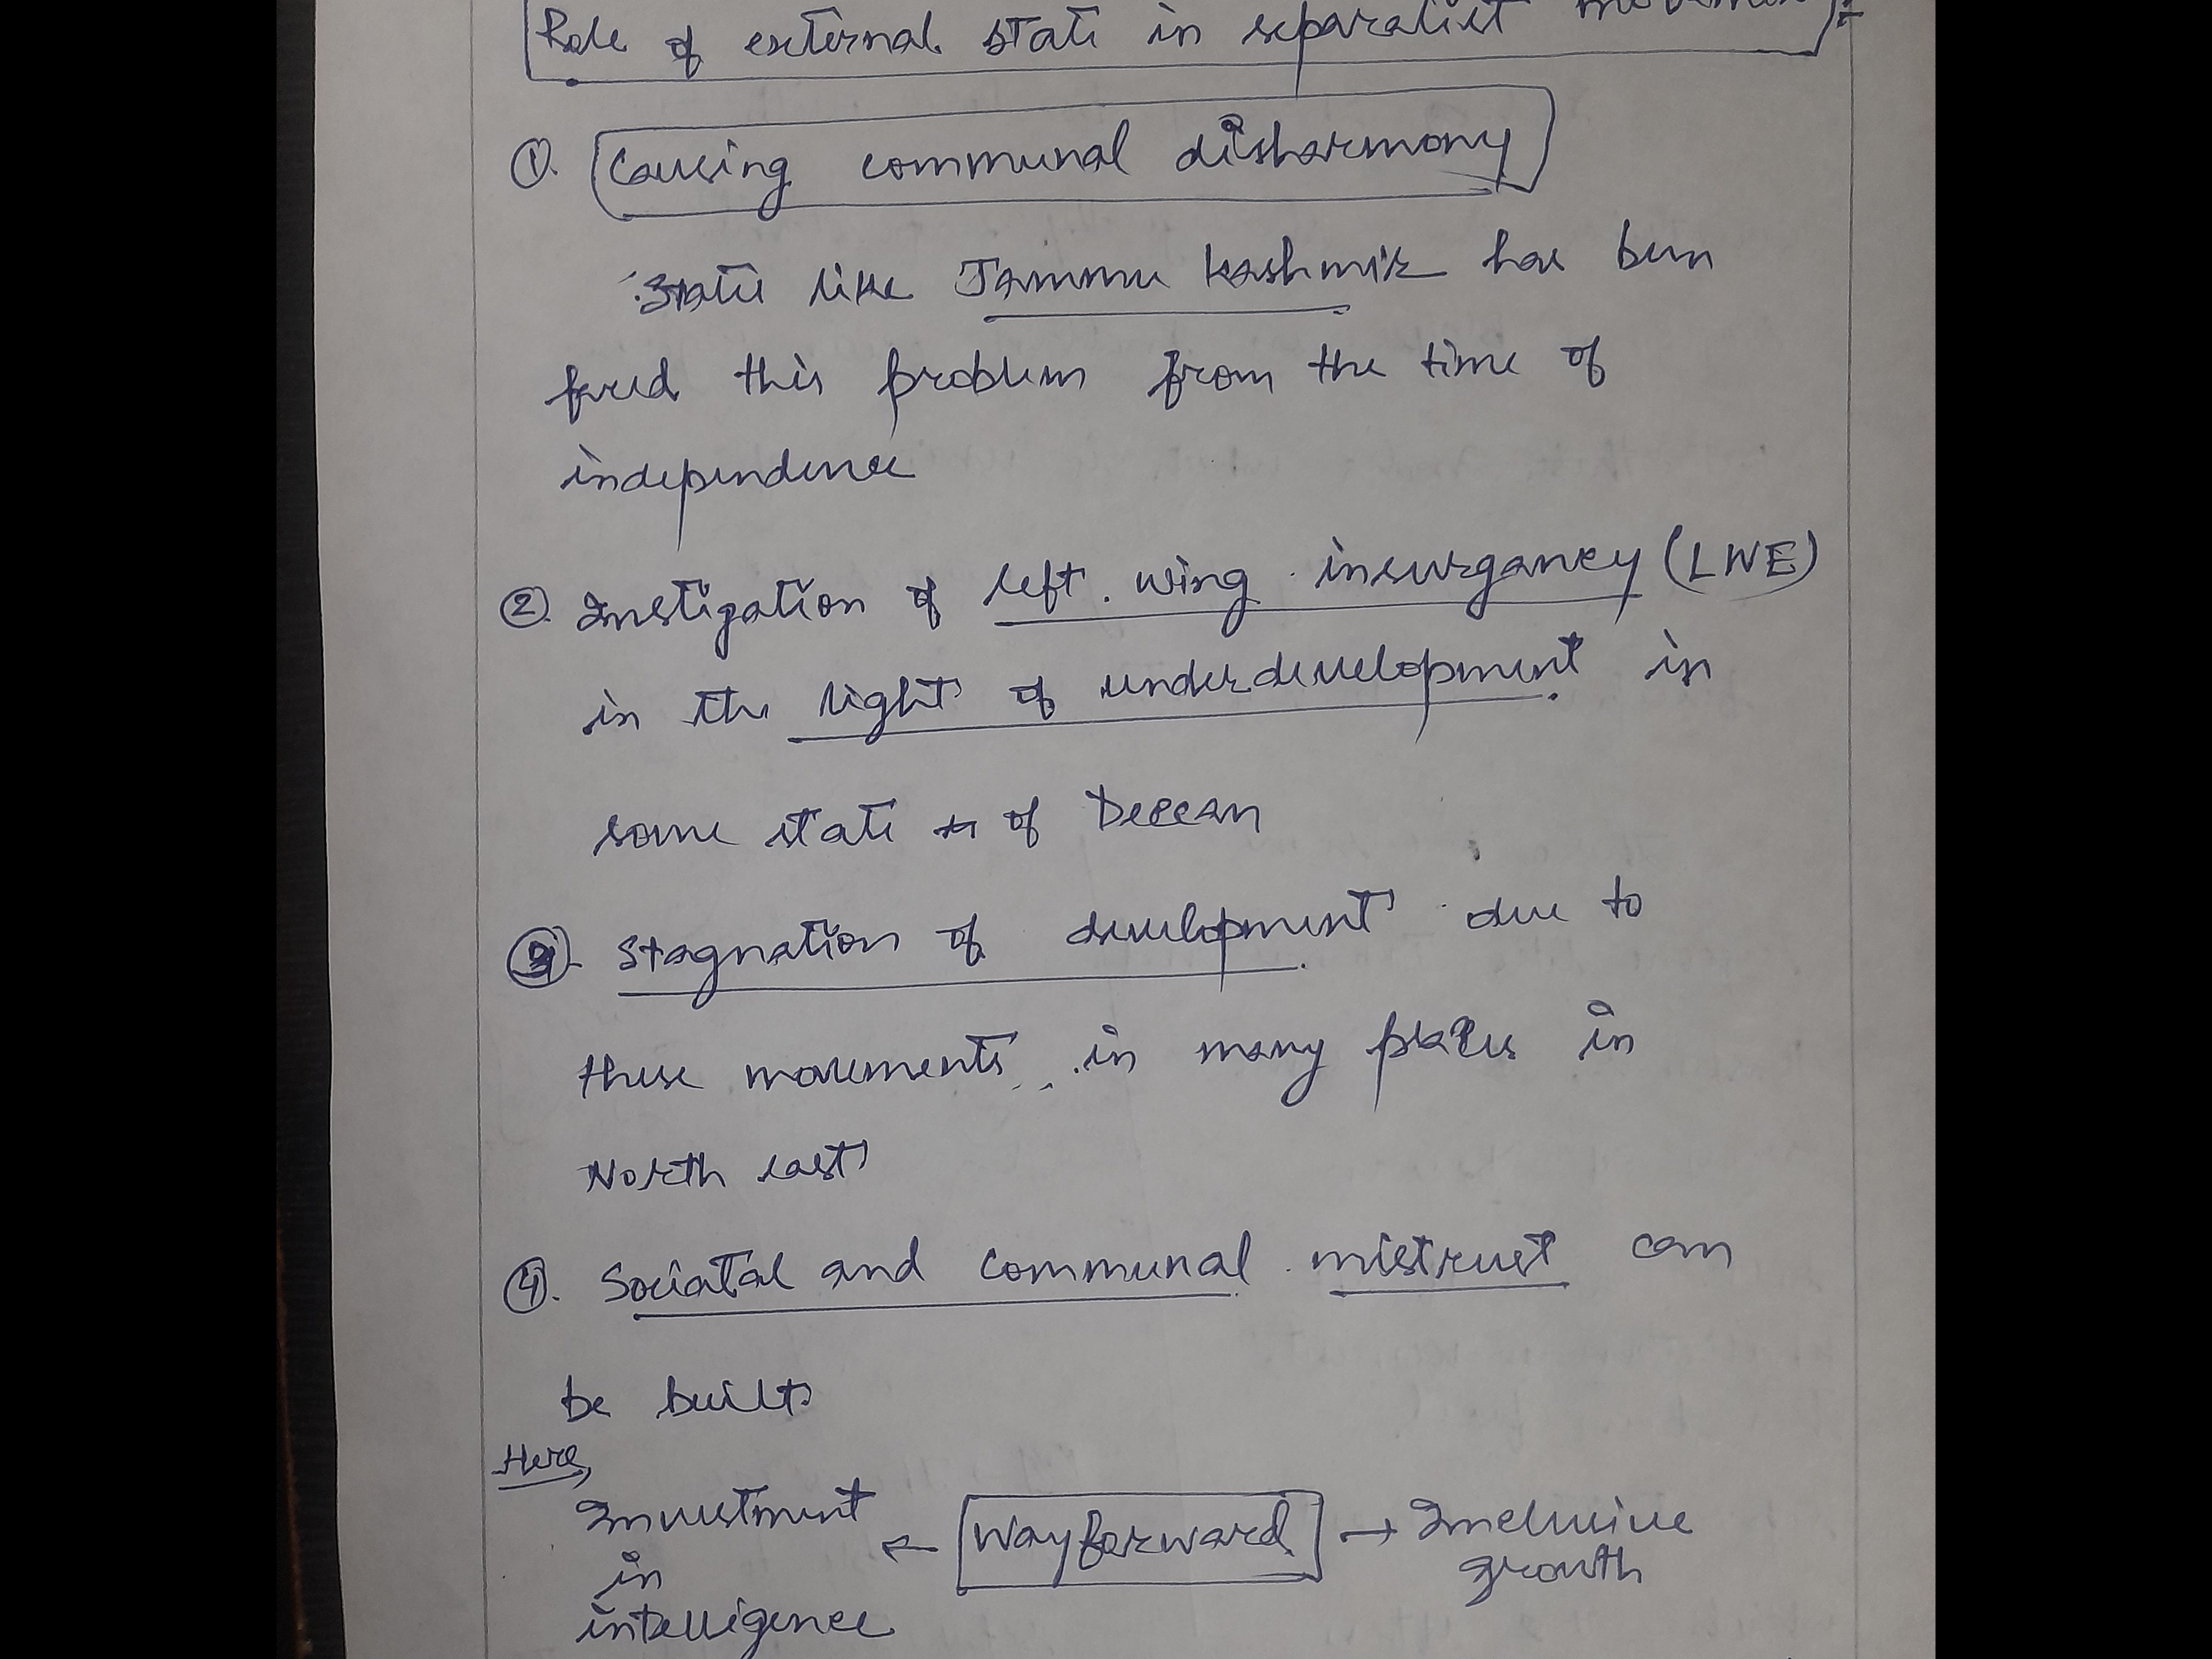 Role of external state in separatist movement :-
①. Causing communal disharmony
State like Jammu Kashmir has been
faced this problem from the time of
independence
②. Instigation of left wing insurgancy (LWE)
in the light of underdevelopment in
some state of Deccan
③. Stagnation of development due to
these movements in many places in
North east
④. Sociatal and communal mistrust can
be built
Here,
Investment ← Wayforward → Inclusive
in growth
intelligence